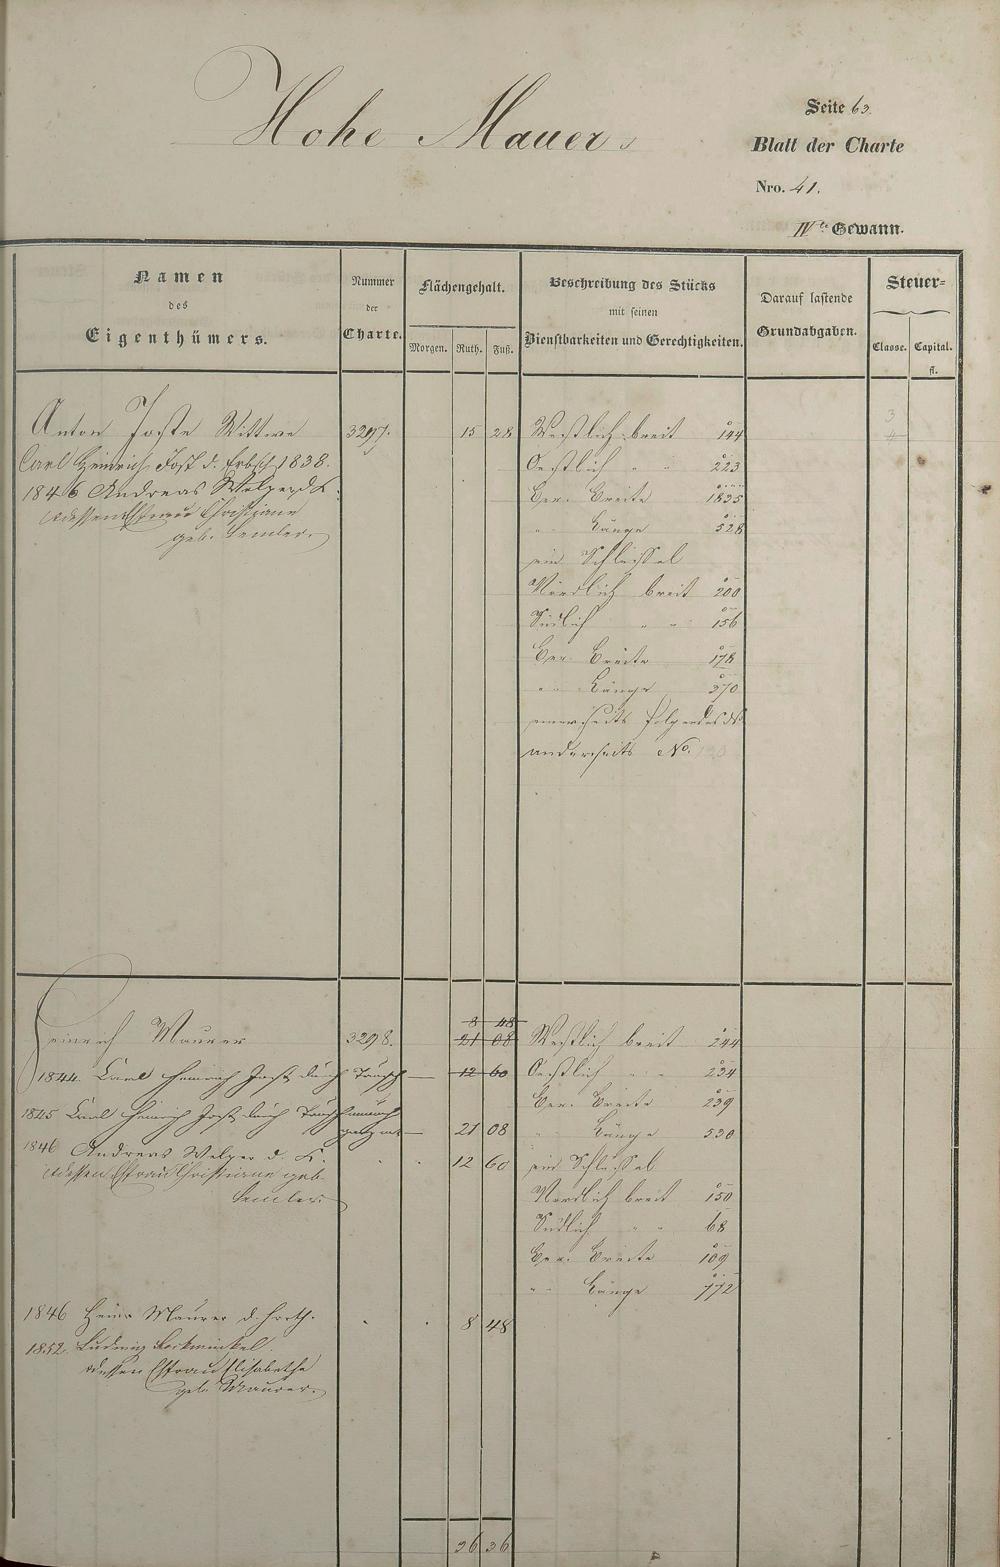 Hohe Mauer
Seite 63.
Blatt der Charte
Nro. 41.
IVte Gewann.
Namen
des
Eigenthümers.
Nummer
der
Charte.
Flächengehalt.
Morgen. Ruth. Fuß.
Beschreibung des Stücks
mit seinen
Dienstbarkeiten und Gerechtigkeiten.
Darauf lastende
Grundabgaben.
Steuer-
Classe. Capital.
fl.
Anton Joste Wittwe 3297. 15 28 Westlich breit 144
3
4
Carl Heinrich Jost d. Erbsch. 1838. Oestlich " " 223
1846 Andreas Welper d. K. Ber. Breite 1835
dessen Ehfrau Christiane " Länge 528
geb. Semler.
ein Schleissel
Nördlich breit 200
Südlich " " 156
Ber. Breite 178
" Länge 370
einerseits folgendes St.
anderseits No.
8 48
Heinrich Maurer 3298. 21 08 Westlich breit 244
1844. Carl Heinrich Jost durch Tausch — 12 60 Oestlich " " 234
Ber. Breite 239
1845 Carl Heinrich Jost durch Tausch
— 21 08 " Länge 530
1846 Andreas Welper d. K. 12 60 ein Schleissel
dessen Ehfrau Christiane geb.
Semler.
Nördlich breit 150
Südlich " " 68
Ber. Breite 109
" Länge 772
1846 Heinr. Maurer d. 8 48
1852. Ludwig
dessen Ehfrau Elisabetha
geb. Maurer.
36 36